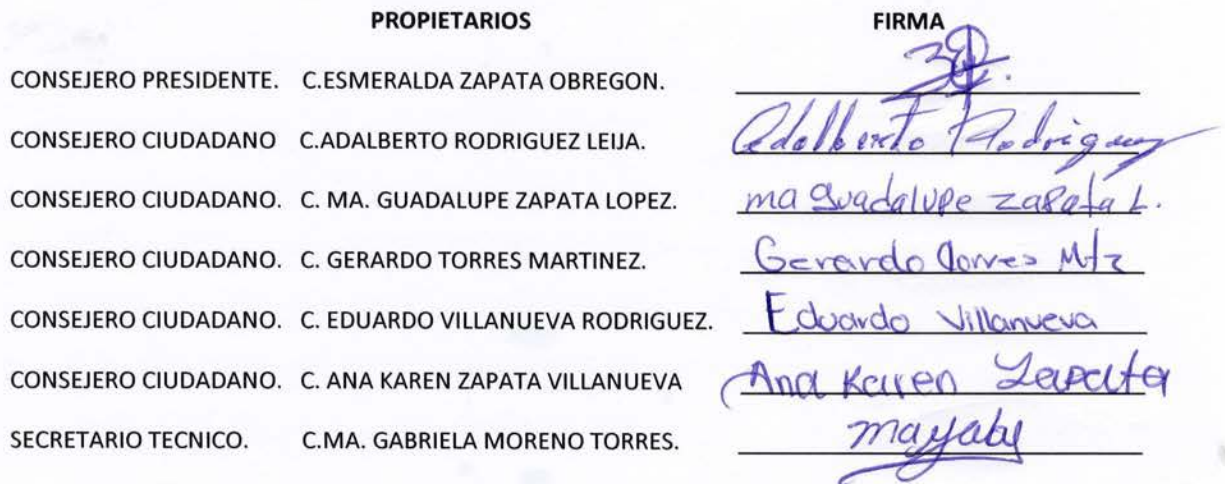 PROPIETARIOS FIRMA
CONSEJERO PRESIDENTE. C.ESMERALDA ZAPATA OBREGON.
CONSEJERO CIUDADANO C.ADALBERTO RODRIGUEZ LEIJA. Adalberto Rodriguez
CONSEJERO CIUDADANO. C. MA. GUADALUPE ZAPATA LOPEZ. ma guadalupe zapata L.
CONSEJERO CIUDADANO. C. GERARDO TORRES MARTINEZ. Gerardo Torres Mtz
CONSEJERO CIUDADANO. C. EDUARDO VILLANUEVA RODRIGUEZ. Eduardo Villanueva
CONSEJERO CIUDADANO. C. ANA KAREN ZAPATA VILLANUEVA Ana Karen Zapata
SECRETARIO TECNICO. C.MA. GABRIELA MORENO TORRES.